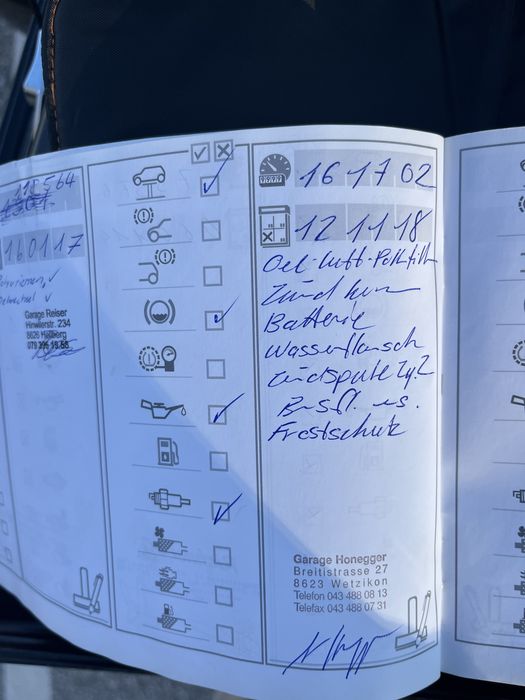 118564
160117
Garage Reiser
Hinwilerstr. 234
8626
161702
121118
Oel-Luft-Pollfilt
Zündkerz
Batterie
Wasserflansch
Zündspule Zy.2
Frostschutz
Garage Honegger
Breitistrasse 27
8623 Wetzikon
Telefon 043 488 08 13
Telefax 043 488 07 31